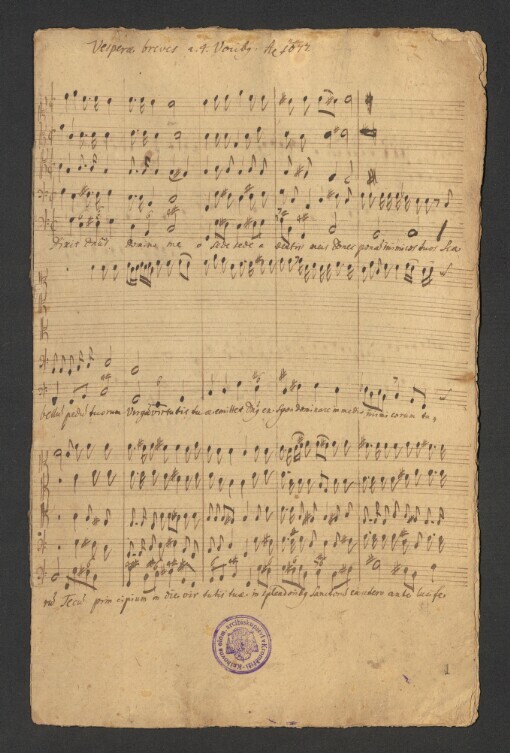 Vesperæ breves a. 4. Vocibq. Ae 1672
Dixit Domine me o sede sede a dextris meis donec ponam inimicos tuos sca
bellū pedū tuorum Virgā virtutis tuæ emittet ex Sion dominare in medio inimicorum tuo,
rū Tecū principium in die virtutis tuæ in splendoribq sanctorū ex utero ante lucife
1